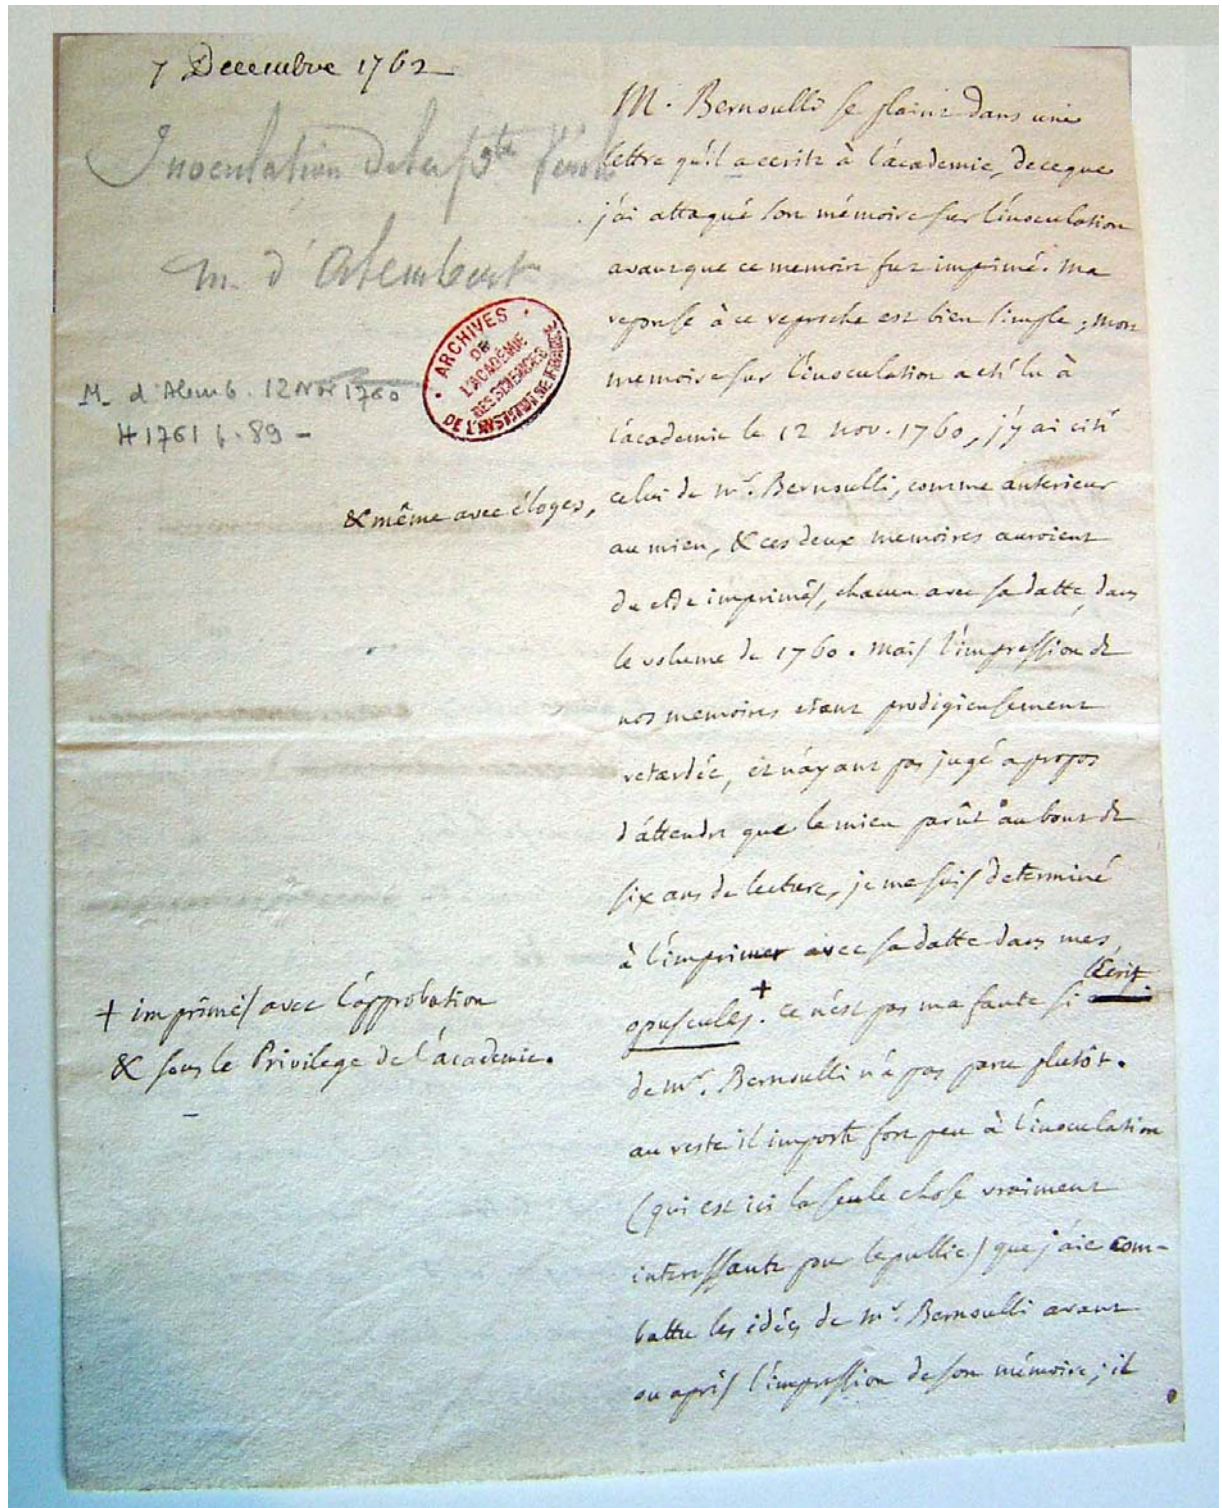 7 Decembre 1762
Inoculation de la pte Verole
M. d'Alembert
M. d'Alemb. 12 Nov 1760
H 1761 p. 89 -
ARCHIVES
DE
L'ACADÉMIE
DES SCIENCES
DE L'INSTITUT DE FRANCE
M. Bernoulli se plaint dans une
lettre qu'il a ecrite à l'academie, de ce que
j'ai attaqué son mémoire sur l'inoculation
avant que ce memoire fut imprimé. Ma
reponse à ce reproche est bien simple ; mon
memoire sur l'inoculation a été lu à
l'academie le 12 nov. 1760, j'y ai cité
& même avec éloges,
celui de mr. Bernoulli, comme anterieur
au mien, & ces deux memoires auroient
du etre imprimés, chacun avec sa datte, dans
le volume de 1760. Mais l'impression de
nos memoires etant prodigieusement
retardée, et n'ayant pas jugé a propos
d'attendre que le mien parût au bout de
six ans de lecture, je me suis determiné
à l'imprimer avec sa datte dans mes
opuscules. + ce n'est pas ma faute si l'Ecrit
+ imprimés avec l'approbation
& sous le Privilege de l'academie.
de mr. Bernoulli n'a pas paru plutôt.
au reste il importe fort peu à l'inoculation
(qui est ici la seule chose vraiment
interessante pour le public) que j'aie com-
battu les idées de mr. Bernoulli avant
ou après l'impression de son mémoire ; il